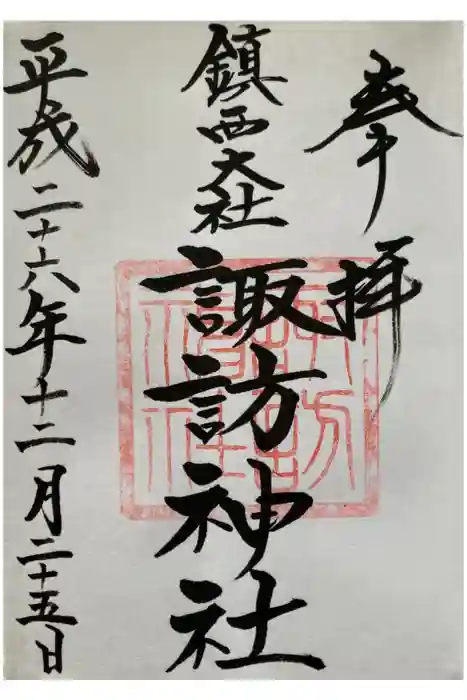 奉拝
鎮西大社
諏訪神社
平成二十六年十二月二十五日